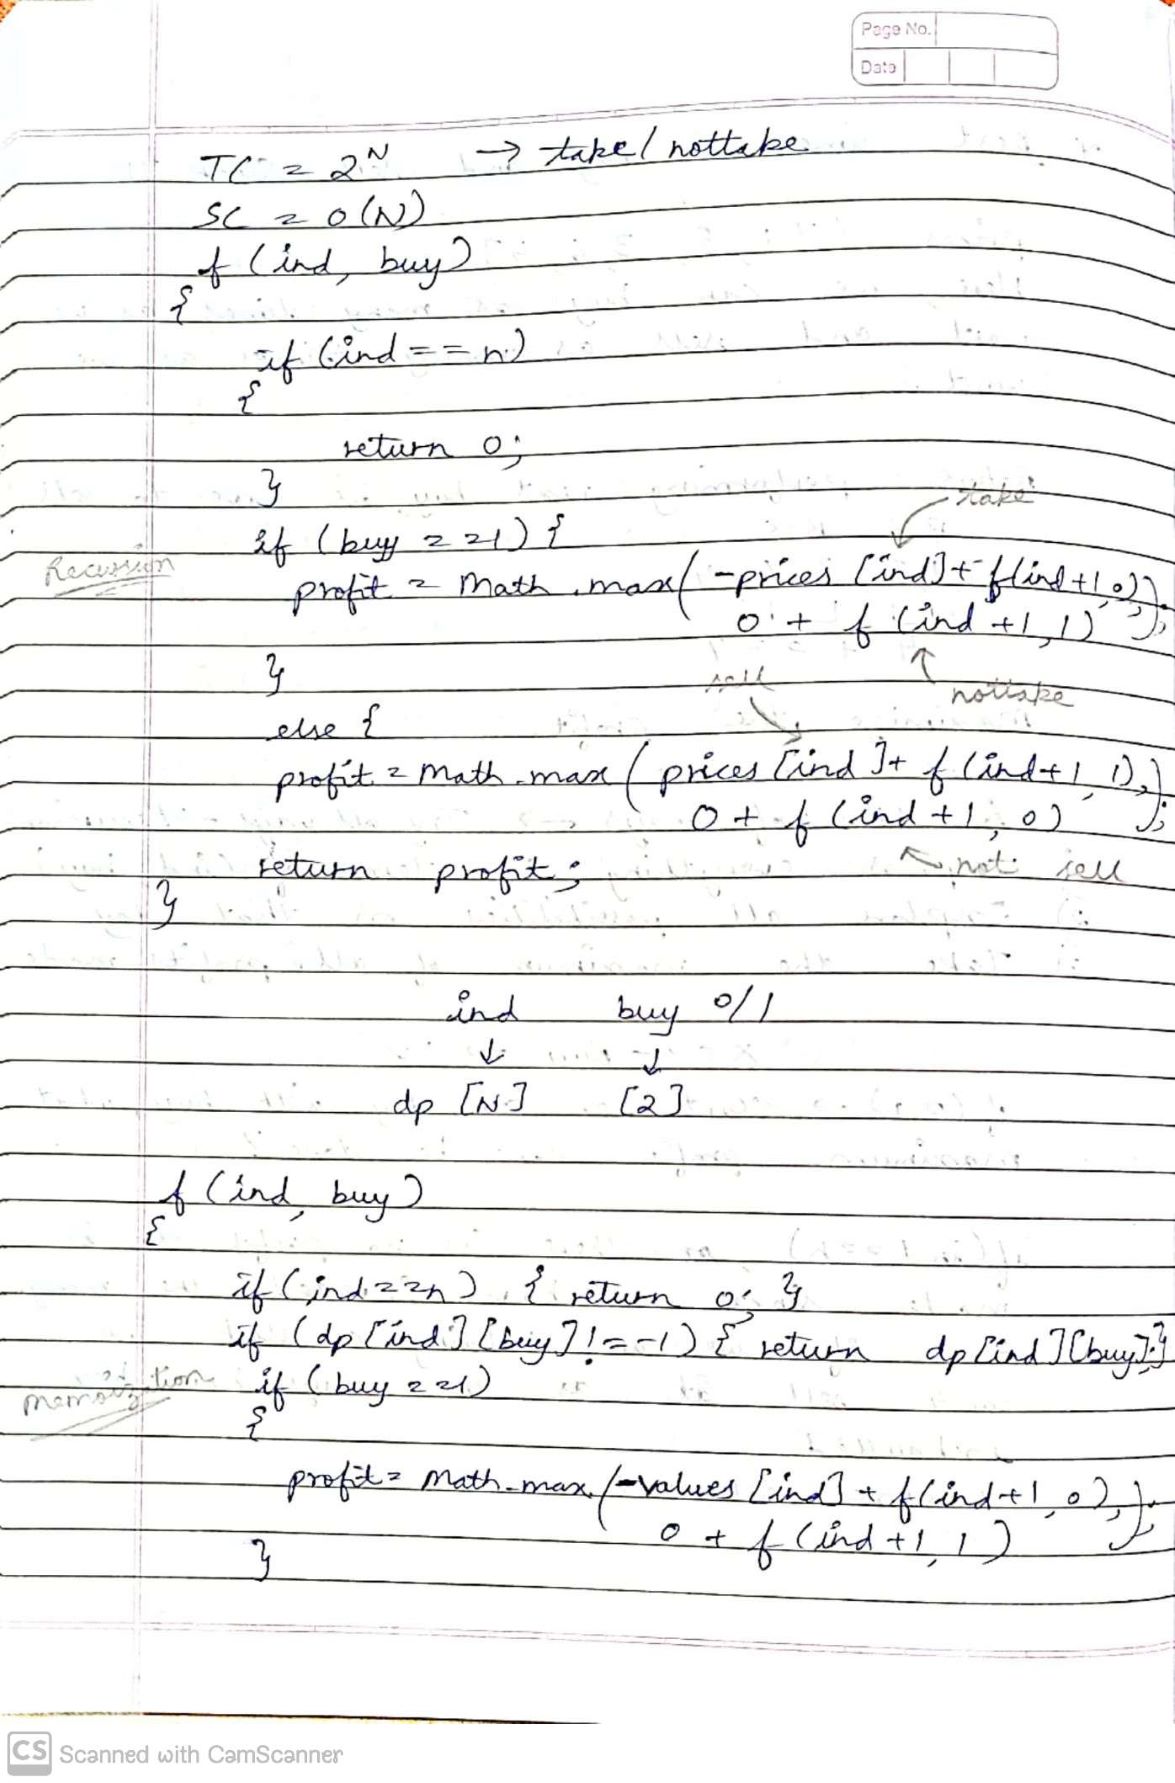 Page No.
Date
TC = 2^N → take / nottake
SC = O(N)
f (ind, buy)
{
if (ind == n)
{
return 0;
}
take
if (buy == 1) {
Recursion
profit = Math.max( -prices [ind] + f(ind+1, 0),
0 + f (ind +1, 1) );
}
sell
nottake
else {
profit = Math.max ( prices [ind] + f (ind+1, 1),
0 + f (ind +1, 0) );
return profit;
not sell
}
ind buy 0/1
↓ ↓
dp [N] [2]
f (ind, buy)
{
if (ind == n) { return 0; }
if (dp [ind] [buy] != -1) { return dp [ind] [buy]; }
Memoization
if (buy == 1)
{
profit = Math.max (-values [ind] + f(ind+1, 0),
0 + f (ind +1, 1) );
}
CS Scanned with CamScanner